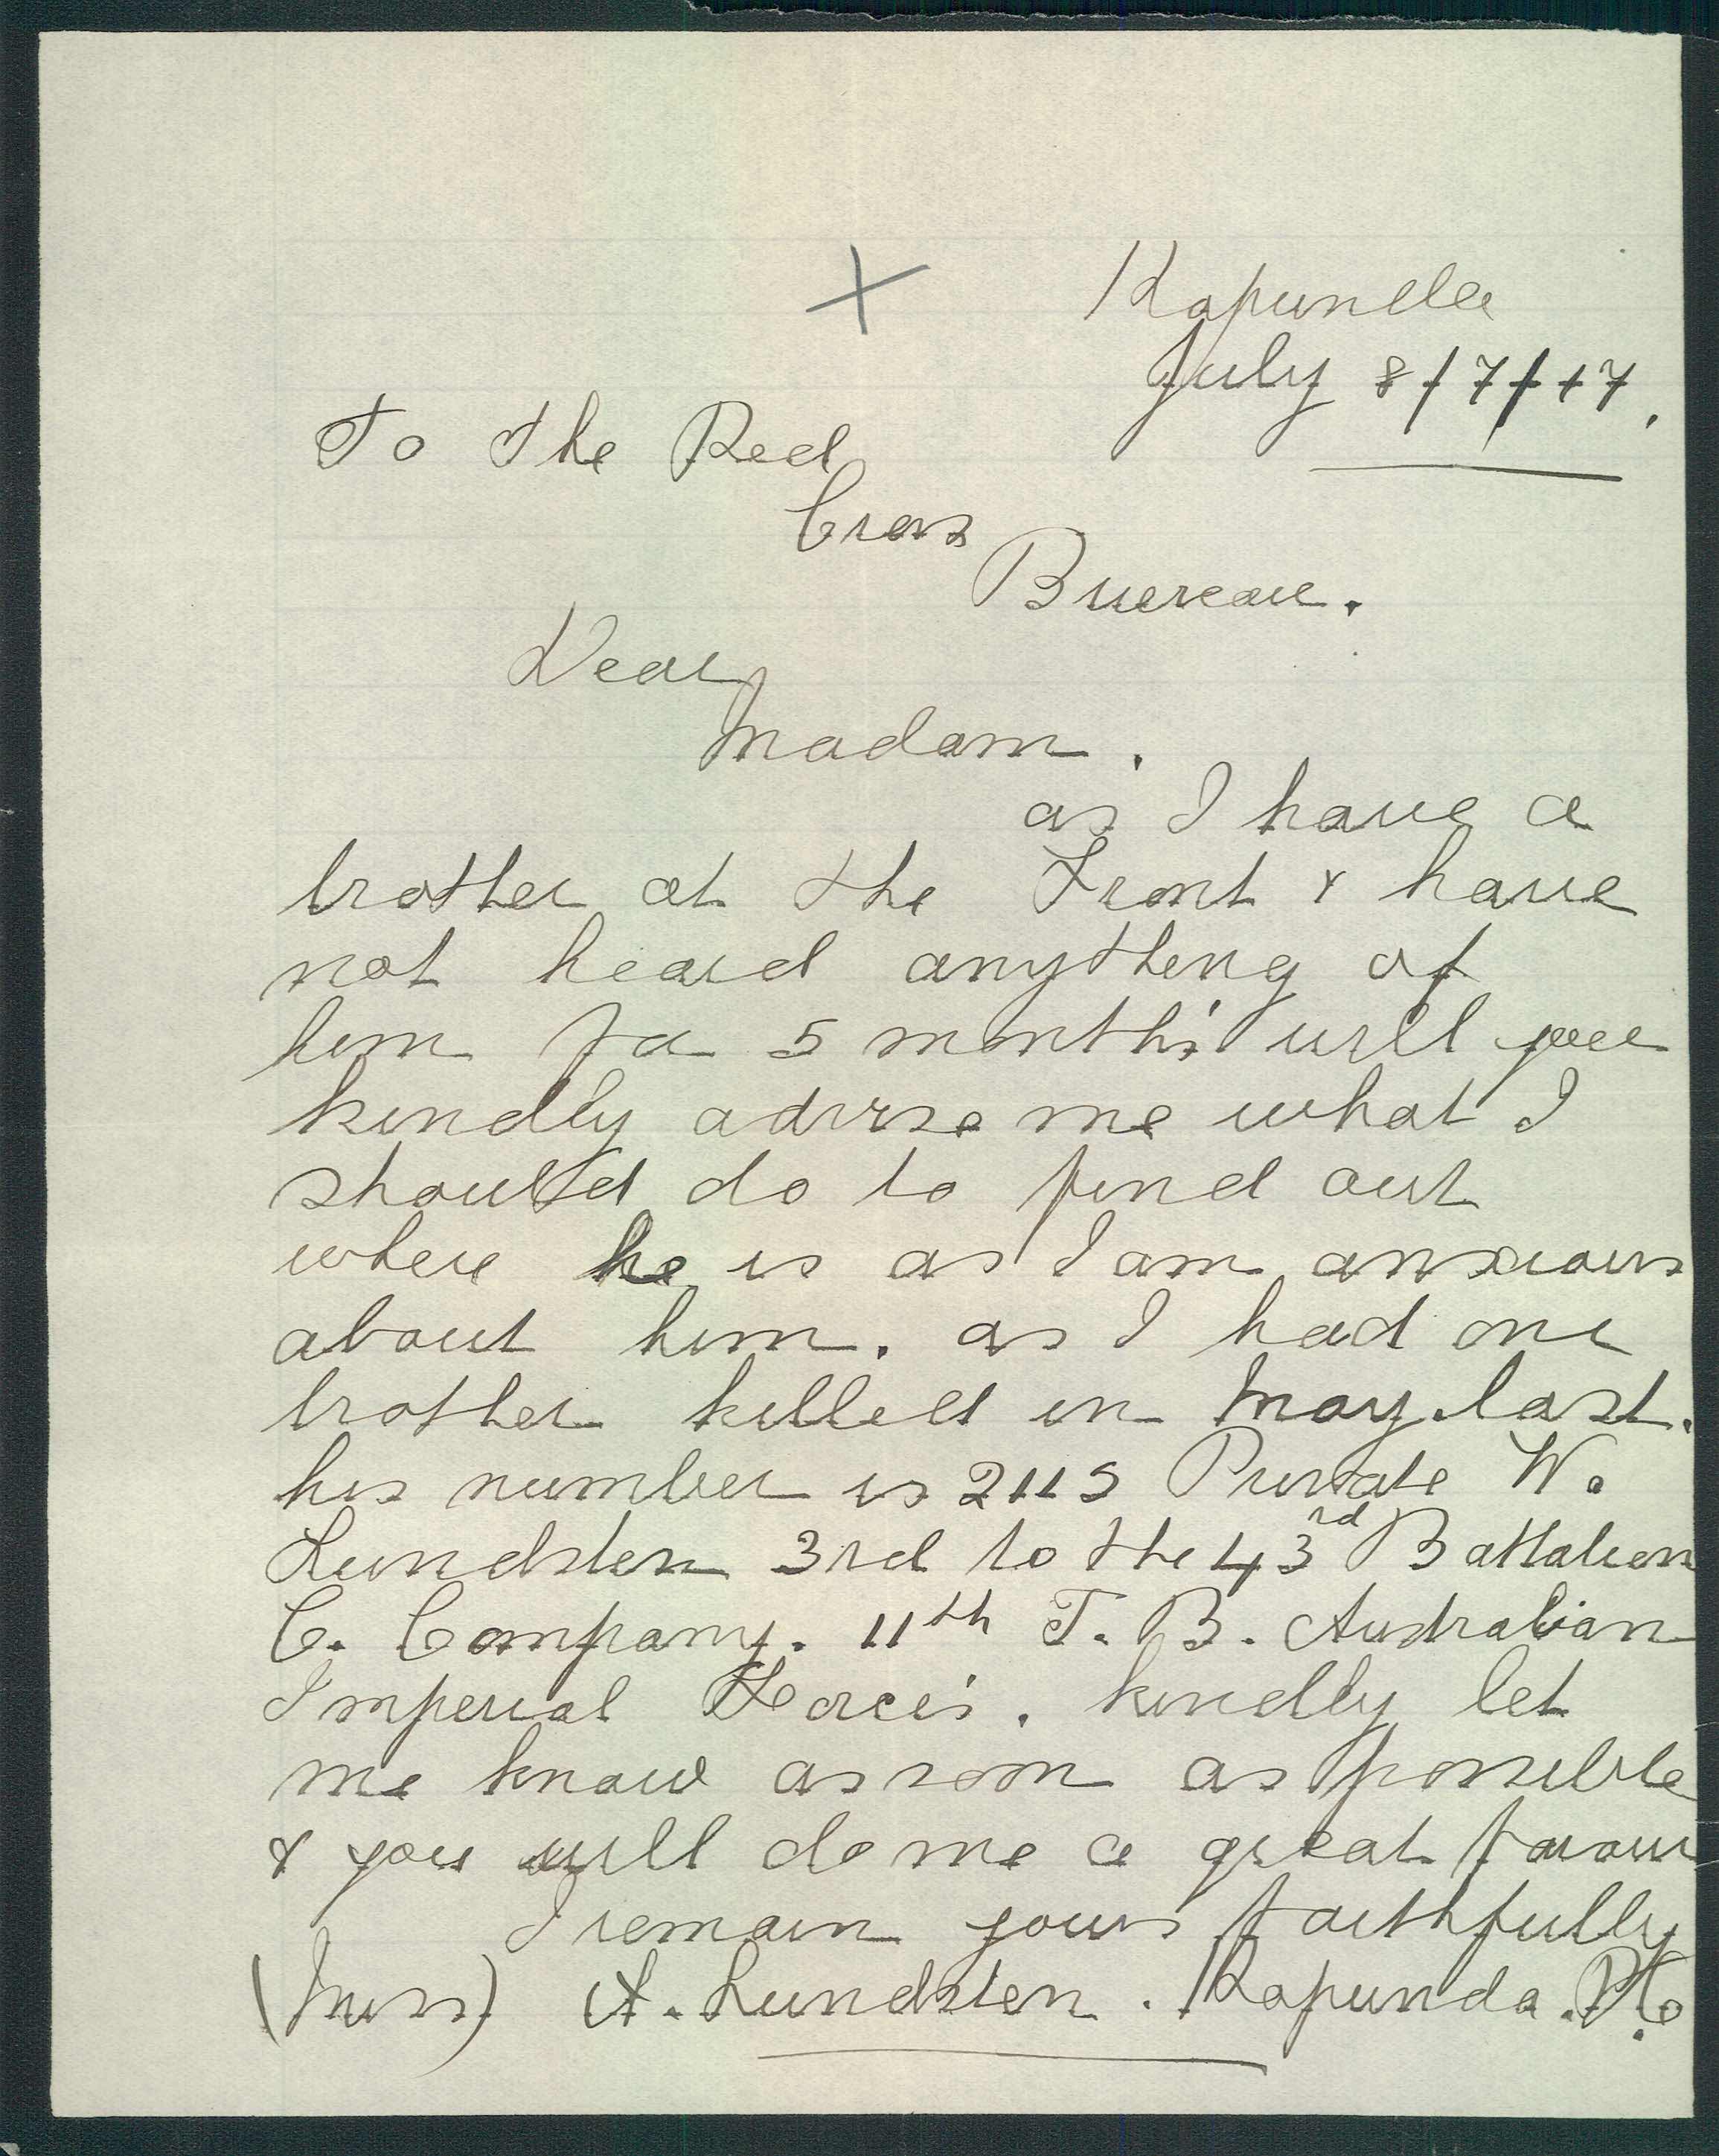 Kapunda
July 8/7/17.
To The Red
Cross
Buereau.
Dear
Madam.
as I have a
brother at the Front & have
not heard anything of
him for 5 months will you
kindly advise me what I
should do to find out
where he is as I am anxious
about him. as I had one
brother killed in May last.
his number is 2115 Private W.
Lundsten 3rd to the 43rd Battalion
C. Company. 11th T. B. Australian
Imperial Forces. kindly let
me know as soon as possible
& you will do me a great favour
I remain yours faithfully
(Miss) A. Lundsten. Kapunda. P.O